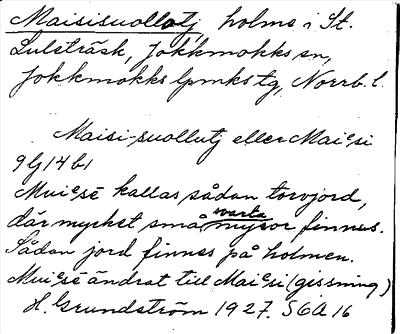 Maisisuollotj, holme i St.
Luleträsk, Jokkmokks sn,
Jokkmokks lpmkstg, Norrb. l.
Maisi-suollutj eller Maiᵉsi
9 lj 14 b1
Muiᵉsē kallas sådan torvjord,
där mycket små svarta mysor finnes.
Sådan jord finnes på holmen.
Muiᵉsē ändrat till Maiᵉsi (gissning)
H. Grundström 1927. SGA 16